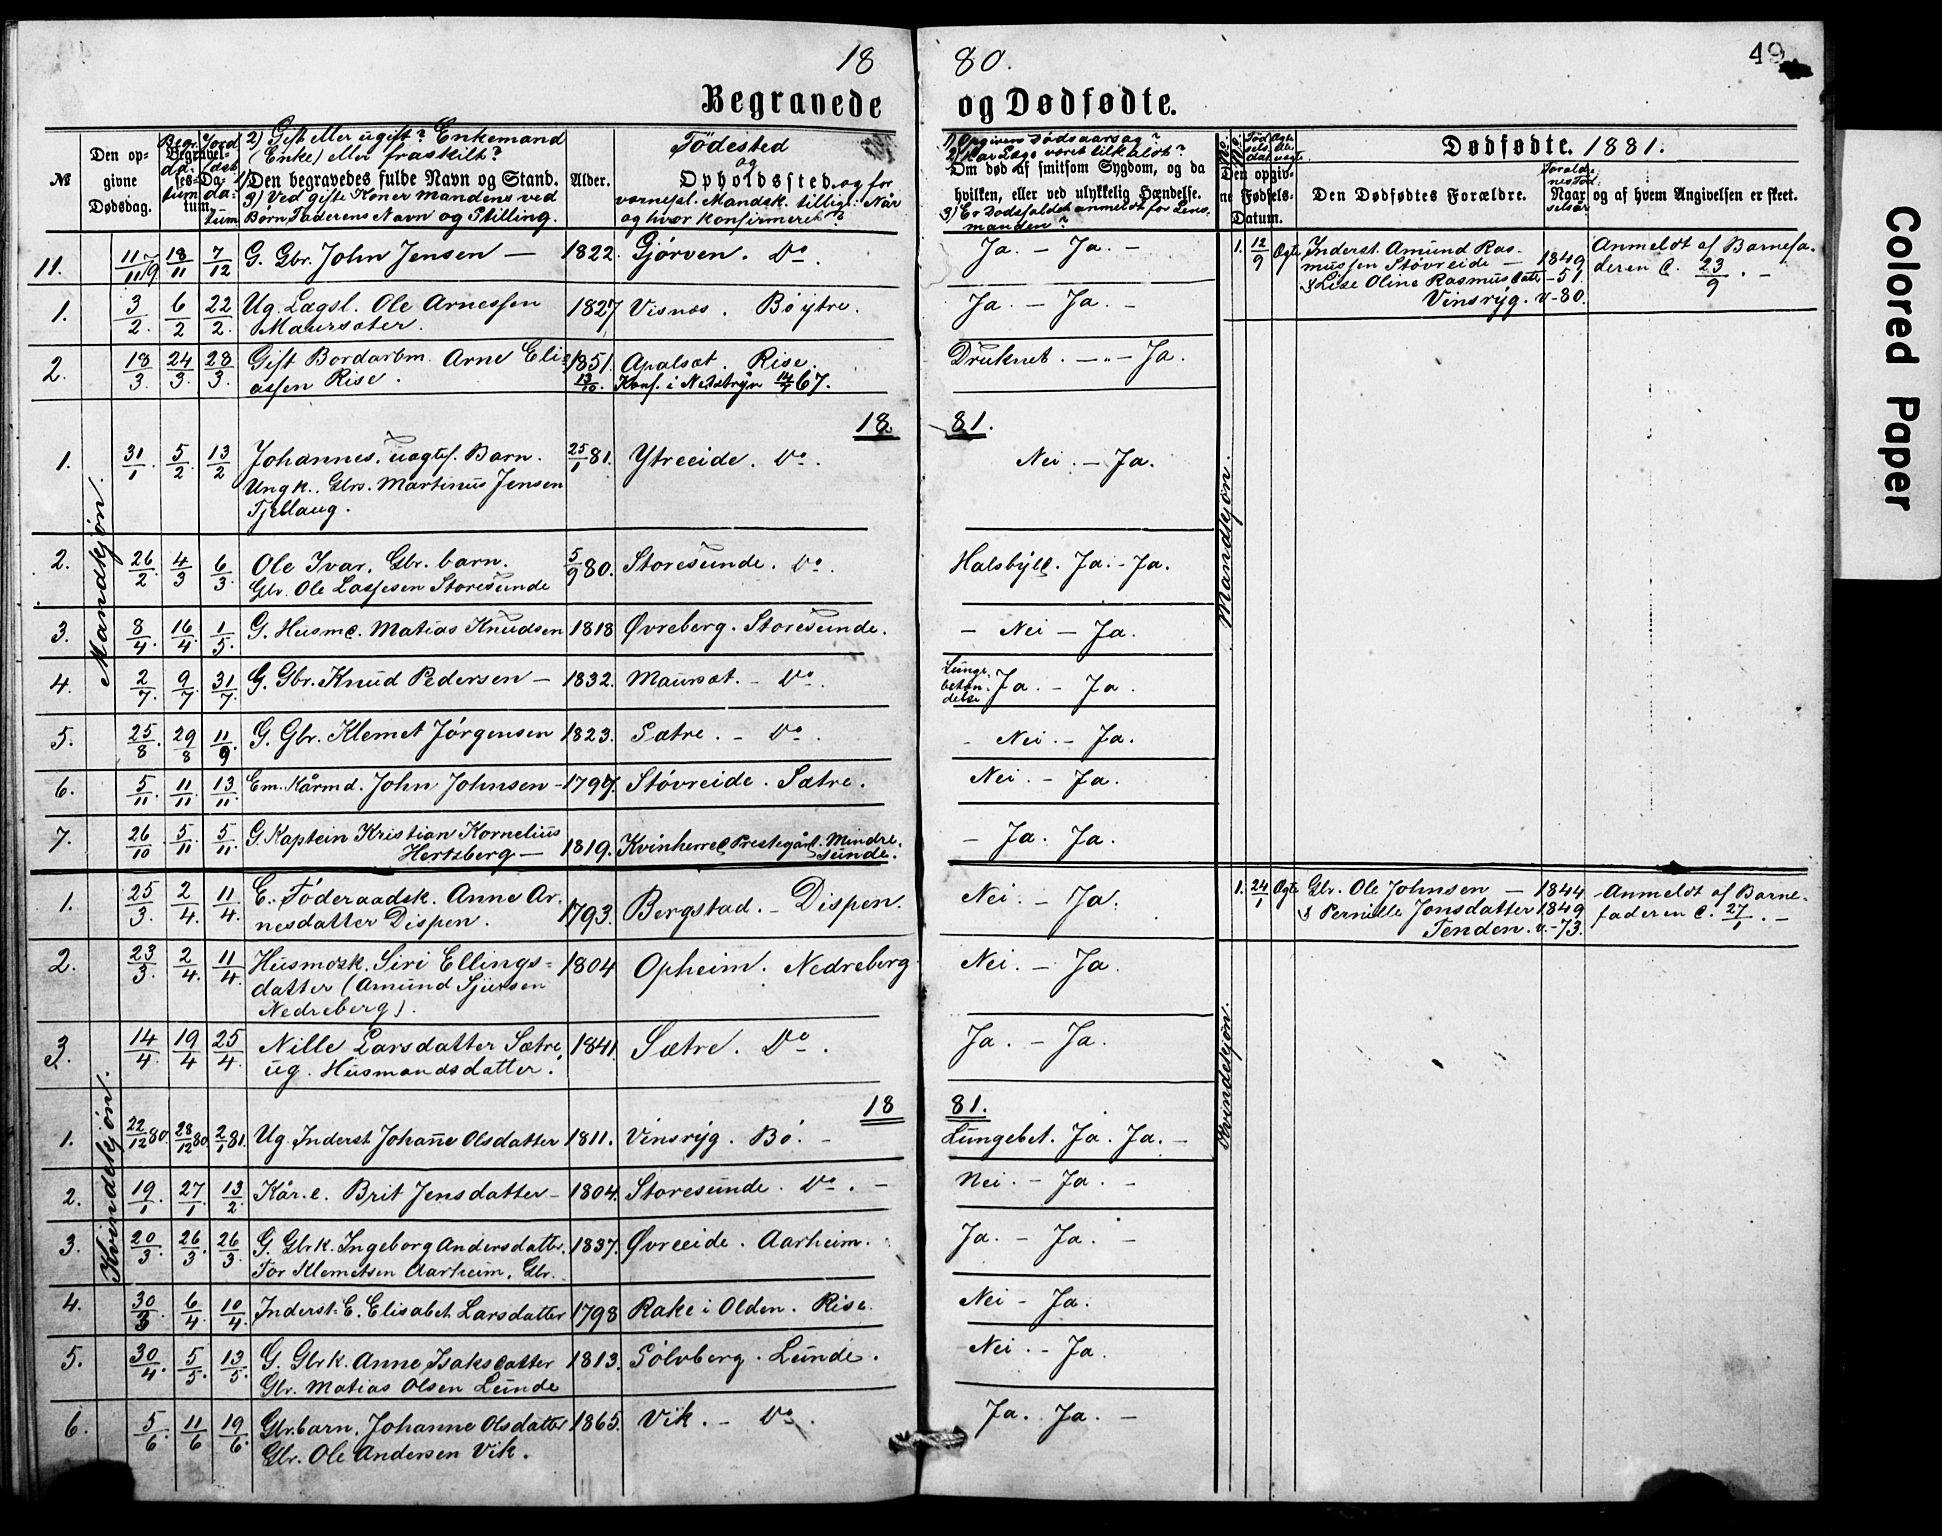 18 80. 49
Begravede og Dødfødte.
№
Den opgivne Dødsdag.
Begr. datum
Jord. datum
2) Gift eller ugift? Enkemand (Enke) eller fraskilt?
Den begravedes fulde Navn og Stand.
3) Ved gifte Koner Mandens ved Børn Faderens Navn og Stilling.
Alder.
Fødested og Opholdssted, og for vernepl. Mandsk. tillige: Når og hvor konfirmeret?
1) Opgiven Dødsaarsag?
2) Har Læge været tilkaldt?
Om død af smitsom Sygdom, og da hvilken, eller ved ulykkelig Hændelse.
3) Er Dødsfaldet anmeldt for Lensmanden?
Den opgivne Fødsels-Datum.
Dødfødte. 1881.
Den Dødfødtes Forældre.
Naar og af hvem Angivelsen er skeet.
Mandkjøn.
11. 11/11 18/11 7/12 G. Gbr. John Jensen — 1822. Gjørven. Do. Ja. – Ja. –
1. 3/2 6/2 22/2 Ug. Lægsl. Ole Arnessen Maursæter. 1827 Visnæs. Bøytre. Ja. – Ja. –
2. 18/3 24/3 28/3. Gift Bordarbm. Arne Eliassen Rise. 1851. 13/10. Apalsæt. Rise. Konf. i Nedstryn 14/7 67. Druknet. – " – Ja.
18 81.
1. 31/1 5/2 13/2 Johannes, uægtef. Barn.
Ungk. Gbrs. Martinus Jensen
Tjellaug. 25/1 81. Ytreeide. Do. Nei. – Ja.
2. 26/2 4/3 6/3. Ole Ivar, Gbr. barn.
Gbr. Ole Lassesen Storesunde 5/9 80. Storesunde. Do. Halsbyld. Ja. – Ja.
3. 8/4 16/4 1/5. G. Husmd. Matias Knudsen 1818 Øvreberg. Storesunde. – Nei – Ja.
4. 2/7 9/7 31/7 G. Gbr. Knud Pedersen – 1832. Maursæt. – Do. Lungebetændelse Ja. – Ja.
5. 25/8 29/8 11/9 G. Gbr. Klemet Jørgensen 1823. Sætre. – Do. – Nei. – Ja.
6. 5/11 11/11 13/11 Em. Kårmd. John Johnsen – 1797. Støvreide. Sætre. Nei. – Ja.
7. 26/10 5/11 5/11 G. Kaptein Kristian Kornelius
Hertzberg — 1819. Kvinherred Prestegård. Mindresunde. – Ja. Ja.
Kvindekjøn.
1. 25/3 2/4. 11/4. E. Føderaadsk. Anne Arnesdatter Dispen. 1793. Bergstad. – Dispen. Nei. – Ja.
2. 23/3. 2/4. 11/4. Husmdsk. Siri Ellingsdatter (Amund Sjursen
Nedreberg). 1804 Opheim. Nedreberg Nei. – Ja.
3. 14/4. 19/4 25/4. Nille Larsdatter Sætre,
ug. Husmandsdatter. 1841. Sætre. Do. Ja. – Ja.
18 81.
1. 22/12 80. 28/12 80 2/1 81. Ug. Inderst Johanne Olsdatter 1811. Vinsryg. Bø. – Lungebet. Ja. Ja. –
2. 19/1. 27/1. 13/2 Kår. e. Brit Jensdatter – 1804. Storesunde. Do. – Nei. – Ja. –
3. 20/3 26/3 26/3 G. Gbrk. Ingeborg Andersdatter.
Tor Klemetsen Aarheim, Gbr. 1837. Øvreeide. Aarheim. Ja. – Ja. –
4. 30/3 6/4 10/4. Inderst. E. Elisabet Larsdatter 1798 Rake i Olden. Rise. Nei – Ja.
5. 30/4 5/5. 13/5. G. Gbrk. Anne Isaksdatter
Gbr. Matias Olsen Lunde 1813. Sølvberg. Lunde. Nei. – Ja.
6. 5/6. 11/6 19/6. Gbr. barn. Johanne Olsdatter
Gbr. Ole Andersen Vik. 1865. Vik. – Do. Ja. Ja. –
Mandkjøn.
1. 12/9 Ægte Inderst. Amund Rasmussen Støvreide – 1849
& Lise Oline Rasmusdatter – 51
Vinsryg. v. – 80. Anmeldt af Barnefaderen d. 23/9. –
Kvindekjøn.
1. 24/1 Ægte Gbr. Ole Johnsen – 1844
& Pernille Jonsdatter 1849
Tenden. v. – 73. Anmeldt af Barnefaderen d. 27/1. –
Colored Paper